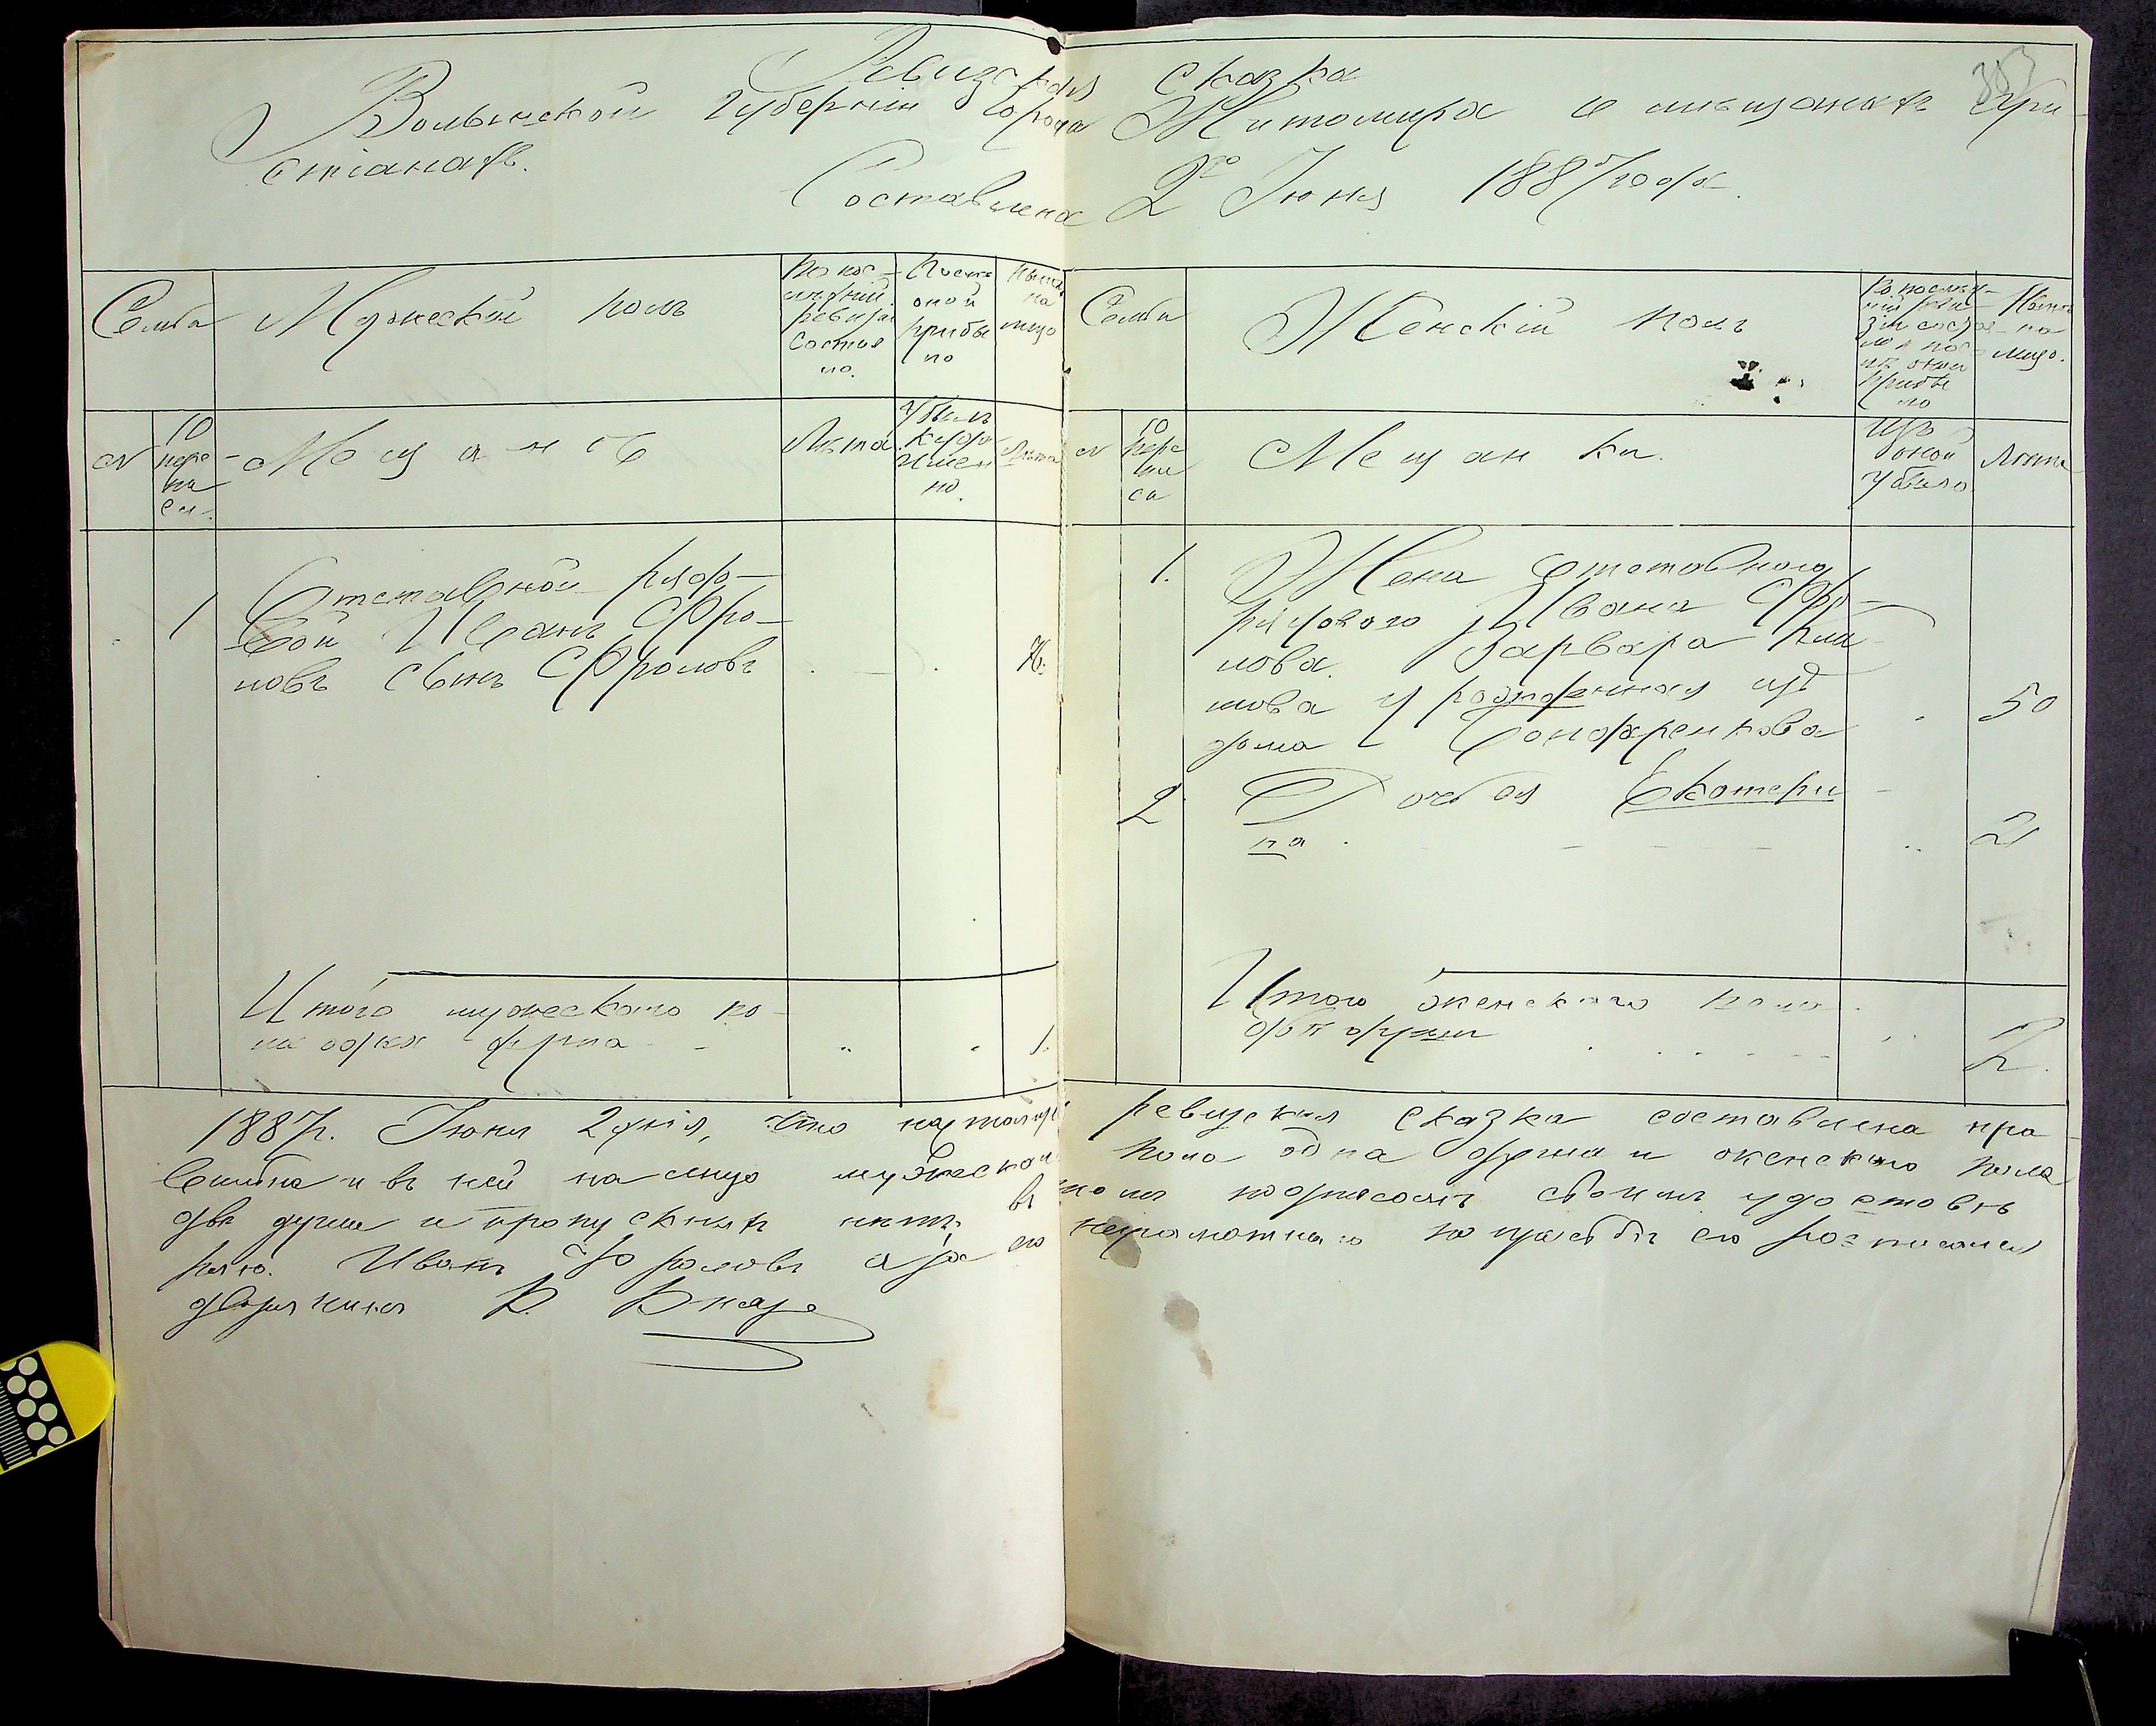 353
Ревизская сказка
Волынской губерніи города Житомира о мѣщанахъ хри
стіанахъ.
Составлена 2го Іюня 1887 года.
Семьи
Мужескій полъ
По пос-
лѣдней
ревизіи
состоя
ло.
Послѣ
оной
прибы
ло
Нынѣ
на
лицо
№
10
пере-
пи
си.
Мещане
Лѣта
Убылъ
когда
имен
но.
Лѣта
1
Отставной рядо-
вой Иванъ Фро-
ловъ сынъ Фроловъ
Итого мужескаго по-
ла одна душа
1.
Семьи
Женскій полъ
По послѣд-
ней реви
зіи состоя-
ло и пос-
лѣ оной
прибы
ло
Нынѣ
на
лицо.
№
10
пере
пи
са
Мещанки.
Изъ
оной
убыло
Лѣта
1.
Жена отставного
рядового Ивана Фро-
лова. Варвара
това урожденная изъ
дома
50
2
Дочь ея Екатери
на
21
Итого женскаго пола
двѣ души
2.
1887 г. Іюня 2 дня, что настоящая ревизская сказка составлена пра
вильно и въ ней на лицо мужескаго пола одна душа и женскаго пола
двѣ души и пропускныхъ нѣтъ въ томъ подписомъ своимъ удостовѣ
ряю. Иванъ Фроловъ а за его неграмотнаго по просьбѣ его росписался
дворянинъ К.